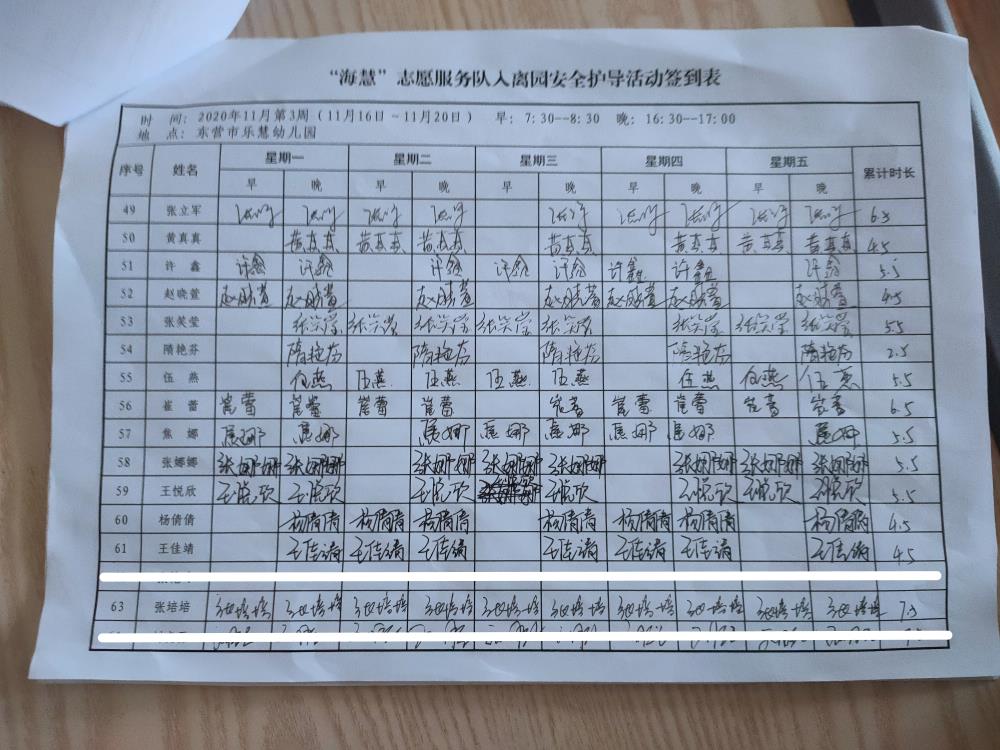 “海慧”志愿服务队入离园安全护导活动签到表
时 间: 2020年11月第3周（11月16日～11月20日） 早: 7:30--8:30 晚: 16:30--17:00
地 点: 东营市乐慧幼儿园
序号 姓名 星期一 星期二 星期三 星期四 星期五 累计时长
早 晚 早 晚 早 晚 早 晚 早 晚
49 张立军
50 黄真真 黄真真 黄真真 黄真真 黄真真 黄真真 黄真真 黄真真 4.5
51 许鑫 许鑫 许鑫 许鑫 许鑫 许鑫 许鑫 许鑫 许鑫 5.5
52 赵晓萱 赵晓萱 赵晓萱 赵晓萱 赵晓萱 赵晓萱 赵晓萱 赵晓萱 4.5
53 张笑莹 张笑莹 张笑莹 张笑莹 张笑莹 张笑莹 张笑莹 张笑莹 张笑莹 5.5
54 隋艳芬 隋艳芬 隋艳芬 隋艳芬 隋艳芬 隋艳芬 2.5
55 伍燕 伍燕 伍燕 伍燕 伍燕 伍燕 伍燕 伍燕 伍燕 5.5
56 崔蕾 崔蕾 崔蕾 崔蕾 崔蕾 崔蕾 崔蕾 崔蕾 崔蕾 崔蕾 6.5
57 焦娜 焦娜 焦娜 焦娜 焦娜 焦娜 焦娜 焦娜 焦娜 5.5
58 张娜娜 张娜娜 张娜娜 张娜娜 张娜娜 张娜娜 张娜娜 张娜娜 张娜娜 5.5
59 王悦欣 王悦欣 王悦欣 王悦欣 王悦欣 王悦欣 王悦欣 王悦欣 5.5
60 杨倩倩 杨倩倩 杨倩倩 杨倩倩 杨倩倩 杨倩倩 杨倩倩 杨倩倩 4.5
61 王佳靖 王佳靖 王佳靖 王佳靖 王佳靖 王佳靖 王佳靖 王佳靖 4.5
63 张培培 张培培 张培培 张培培 张培培 张培培 张培培 张培培 张培培 张培培 张培培